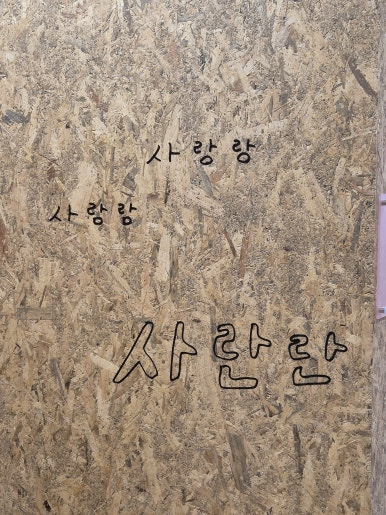 사랑랑
사랑랑
사란란